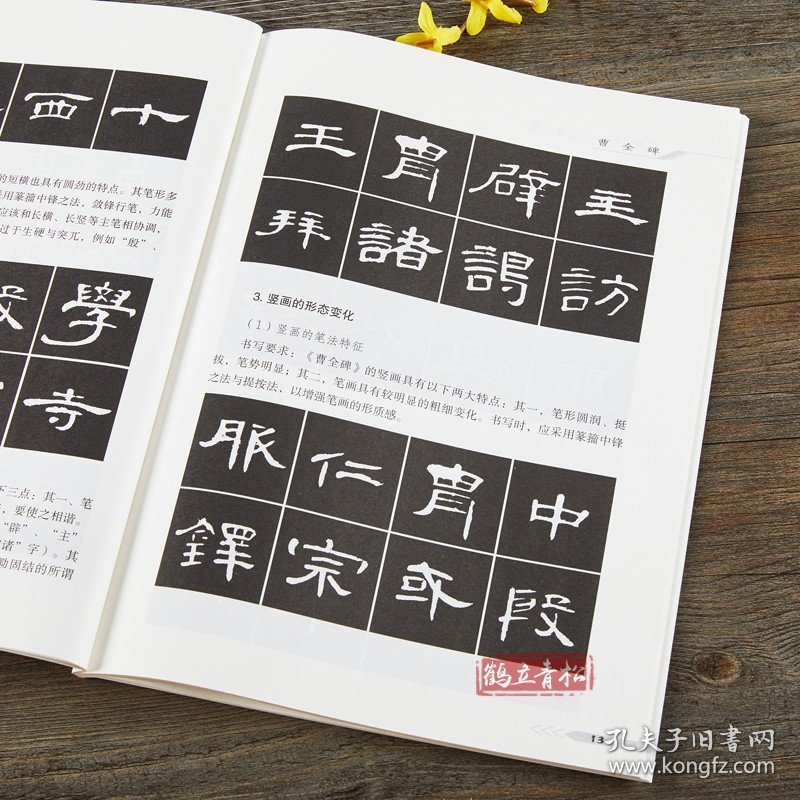 西 十
的短横也具有圆劲的特点。其笔形多
采用篆籀中锋之法，敛锋行笔，力能
应该和长横、长竖等主笔相协调，
过于生硬与突兀，例如“殷”、
學
寺
下三点：其一、笔
，要使之相谐。
“辟”、“主”
诸”字）。其
勒固结的所谓
曹全碑
王 胄 辟 主
拜 諸 謁 訪
3. 竖画的形态变化
（1）竖画的笔法特征
书写要求：《曹全碑》的竖画具有以下两大特点：其一，笔形圆润、挺
拔，笔势明显；其二，笔画具有较明显的粗细变化。书写时，应采用篆籀中锋
之法与提按法，以增强笔画的形质感。
服 仁 胄 中
鐸 宗 或 段
鹤立青松
13
孔夫子旧书网
www.kongfz.com